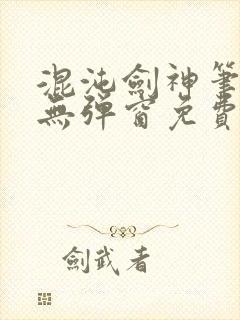 混沌劍神筆
無彈窗免費
劍武者